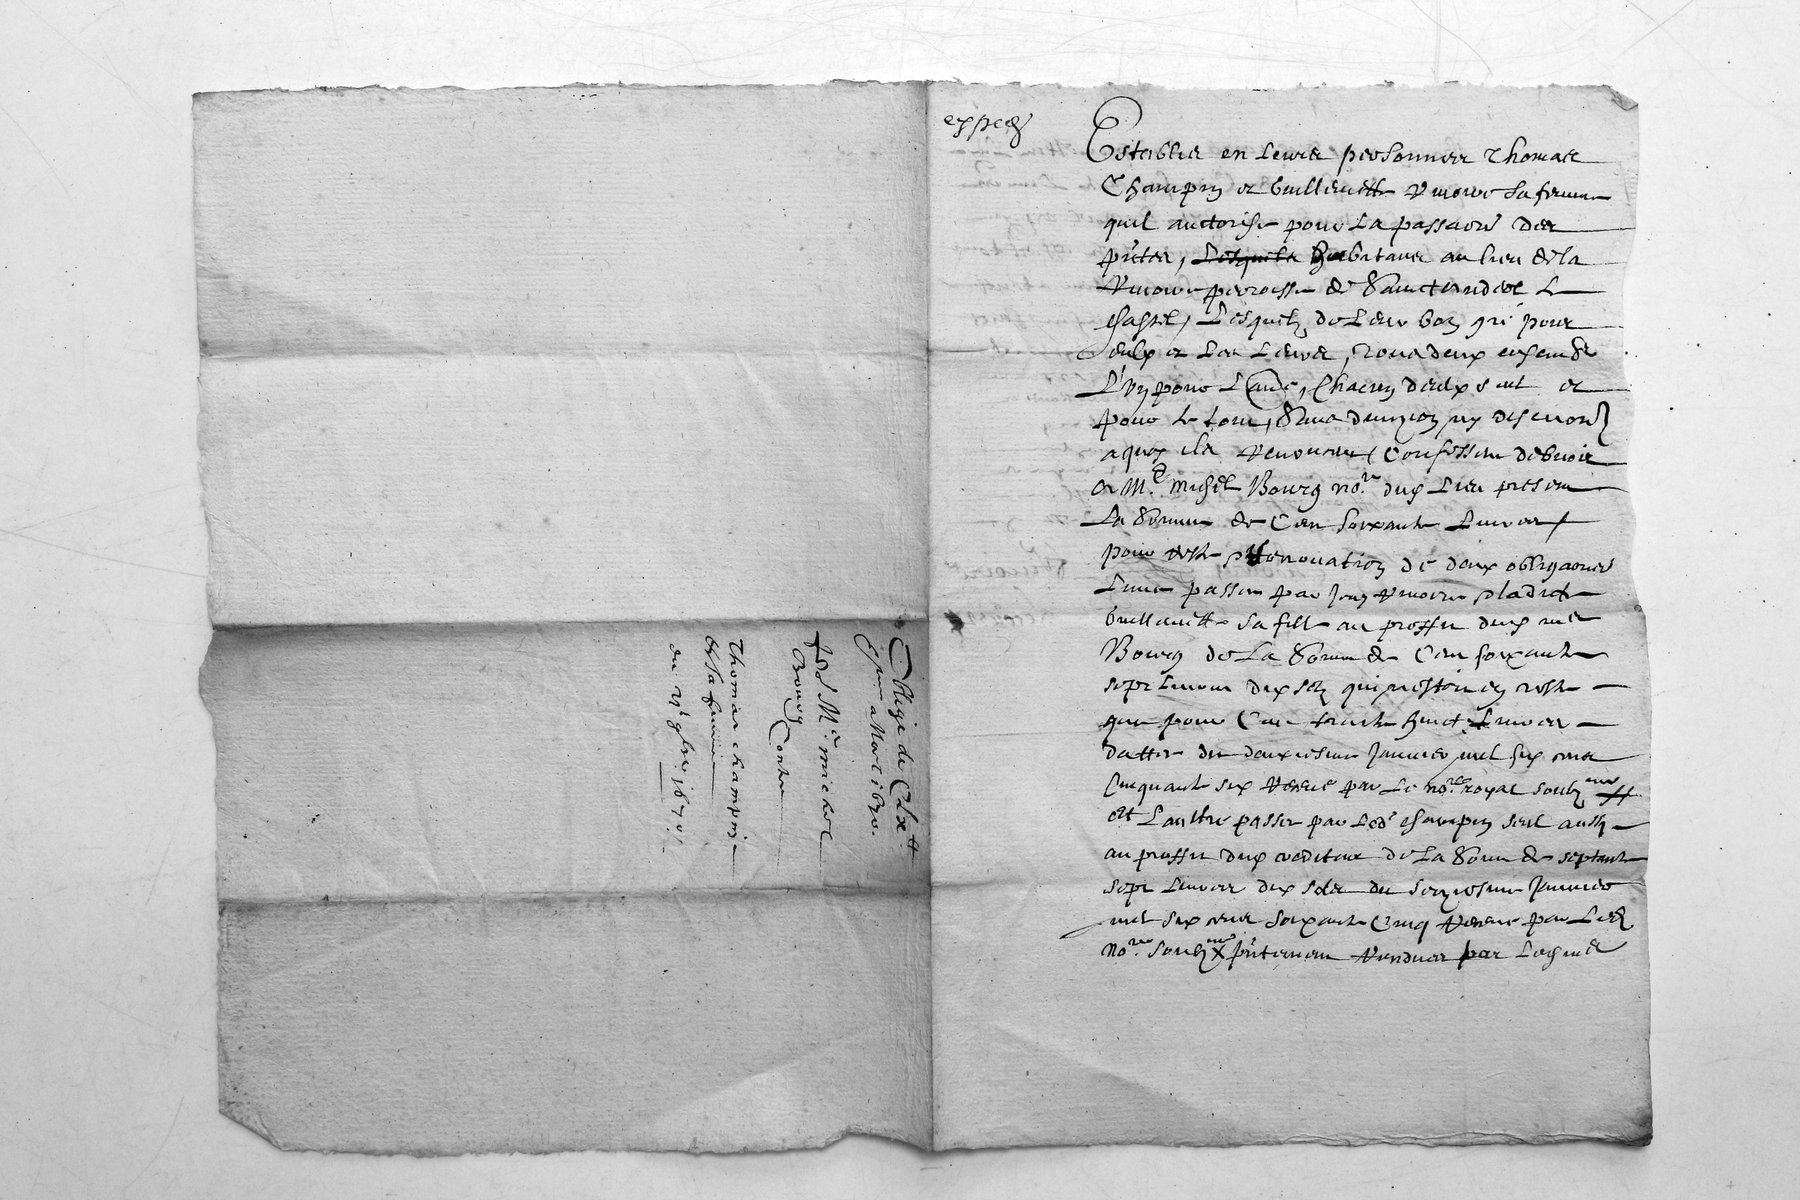 exped
Establis en leurs personnes Thomas
Champin et Guillemette Vinove sa femme
quil auctorise pour la passaon des
pntes, lesquels habitans au lieu de la
Vinove parroisse de Sainct Andre le
Chastel, Lesquels de leur bon gré pour
eulx et les leurs, tous deux ensemble
L'un pour L'autre, Chacun deulx seul et
pour le tout, Sans division ny discution
a quoy ils renoncent, Confessent debvoir
a Me. Michel Bourg nore. dud Lieu present
La Somme de Cent soixante Livres,
pour reste renovation de deux obligaons
Lune passee par Jean Vinove a ladicte
Guillemette sa fille au proffit dud me
Bourg de La Somme de Cent soixante
sept Livres dix solz qui nestoit en reste
que pour Cent trente huict Livres
dattee du deuxiesme Janvier mil six cens
Cinquante six receue par Le nore. royal soubz
et Laultre passee par Led Champin seul aussy
au proffit dud crediteur de La Somme de septante
sept Livres dix solz du seziesme Janvier
mil six cens soixante Cinq receue par Led
nore. soubz pntement rendues par Led me
Oblige de Clx tt
a Mars 1670.
Me. michel
Bourg
Contre
Thomas champin
et sa femme
du 9bre 1670